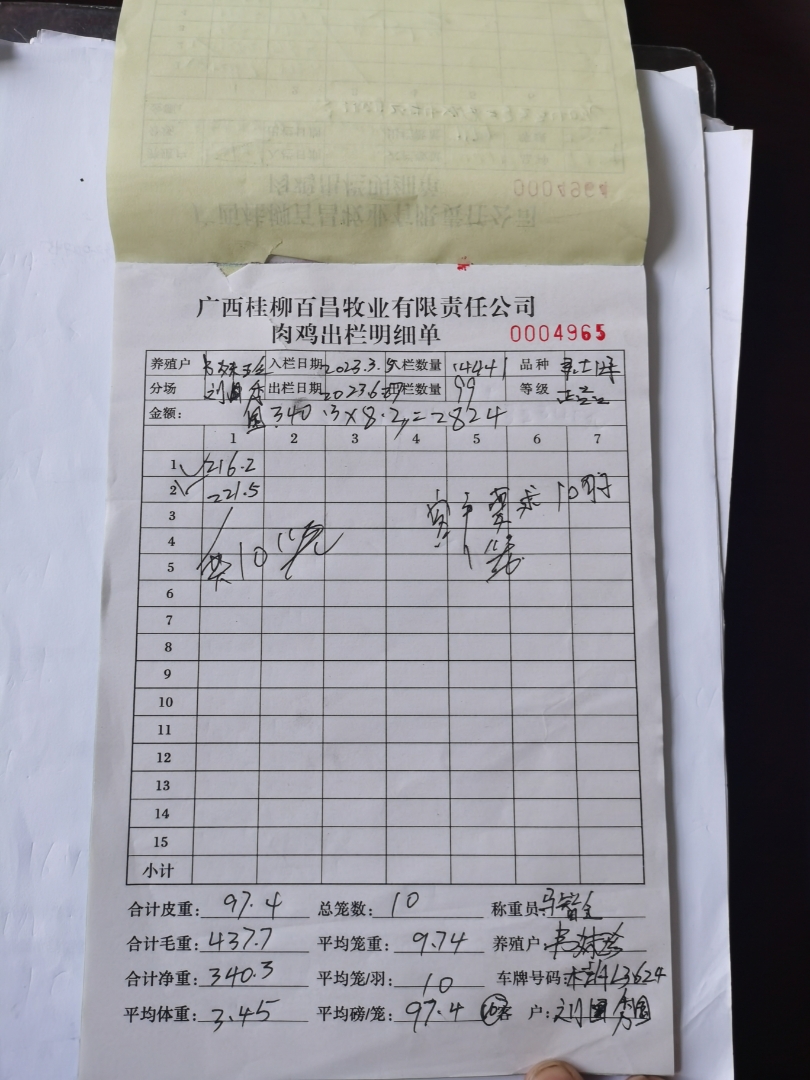 0004964
广西桂柳百昌牧业有限责任公司
肉鸡出栏明细单 0004965
养殖户 入栏日期 2023.3.5 入栏数量 14441 品种
分场 出栏日期 2023.6. 出栏数量 99 等级 正品
金额: 340.3×8.3=2824
1 2 3 4 5 6 7
1 216.2
2 221.5
客户要求10羽
3
4
1笼
共10笼
5
6
7
8
9
10
11
12
13
14
15
小计
合计皮重: 97.4 总笼数: 10 称重员:
合计毛重: 437.7 平均笼重: 9.74 养殖户:
合计净重: 340.3 平均笼/羽: 10 车牌号码: 桂A13624
平均体重: 3.45 平均磅/笼: 97.4 客户: 刘国